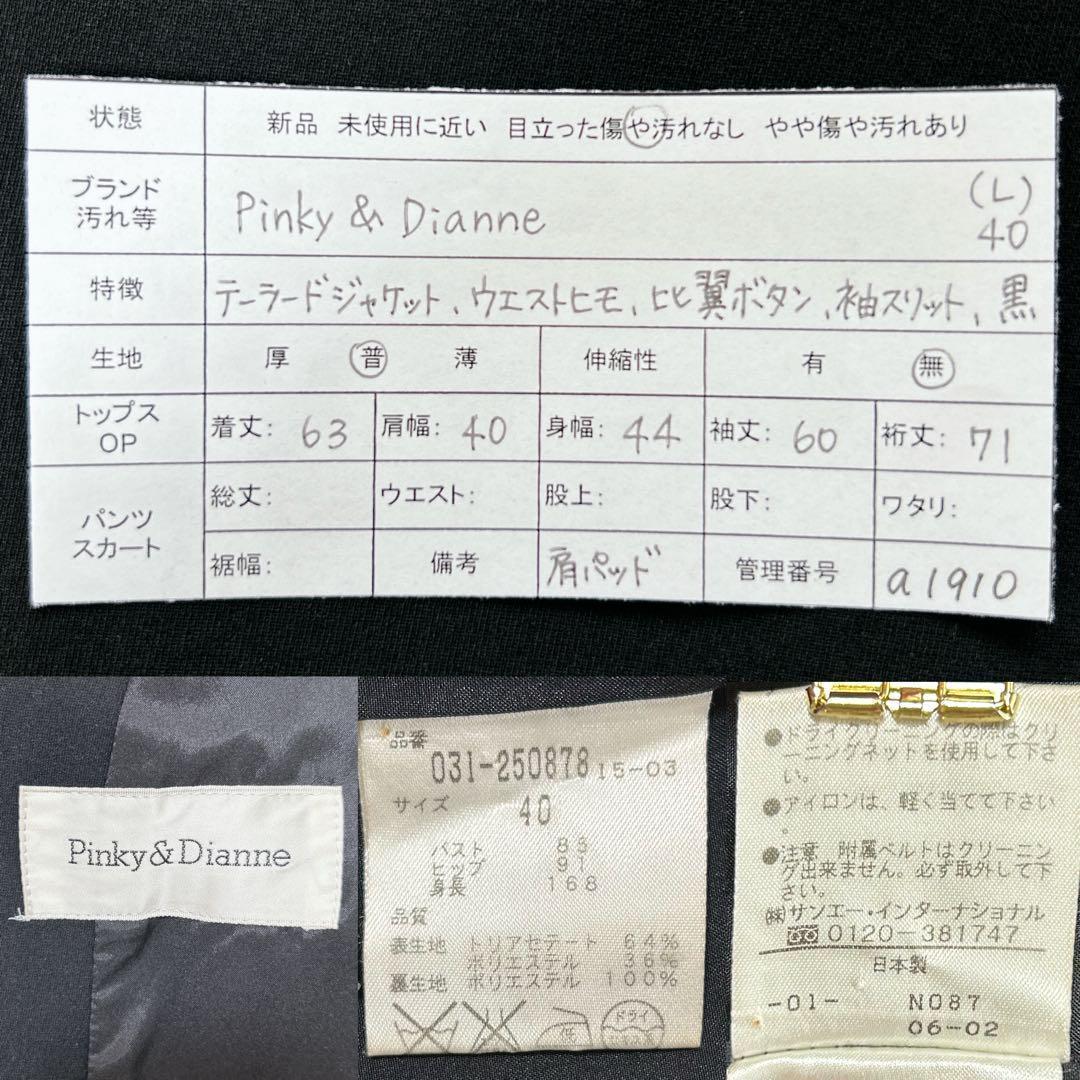 状態 新品 未使用に近い 目立った傷や汚れなし やや傷や汚れあり
ブランド
汚れ等
Pinky & Dianne (L)
40
特徴 テーラードジャケット、ウエストヒモ、比翼ボタン、袖スリット、黒
生地 厚 普 薄 伸縮性 有 無
トップス
OP
着丈: 63 肩幅: 40 身幅: 44 袖丈: 60 裄丈: 71
パンツ
スカート
総丈: ウエスト: 股上: 股下: ワタリ:
裾幅: 備考 肩パッド 管理番号 a1910
Pinky&Dianne
品番
031-250878 15-03
サイズ
40
バスト 85
ヒップ 91
身長 168
品質
表生地 トリアセテート 64%
ポリエステル 36%
裏生地 ポリエステル 100%
低
ドライ
●ドライクリーニングの際はクリ
ーニングネットを使用して下さ
い。
●アイロンは、軽く当てて下さい
。
●注意 附属ベルトはクリーニン
グ出来ません。必ず取外して下
さい。
(株)サンエー・インターナショナル
0120-381747
日本製
-01- N087
06-02